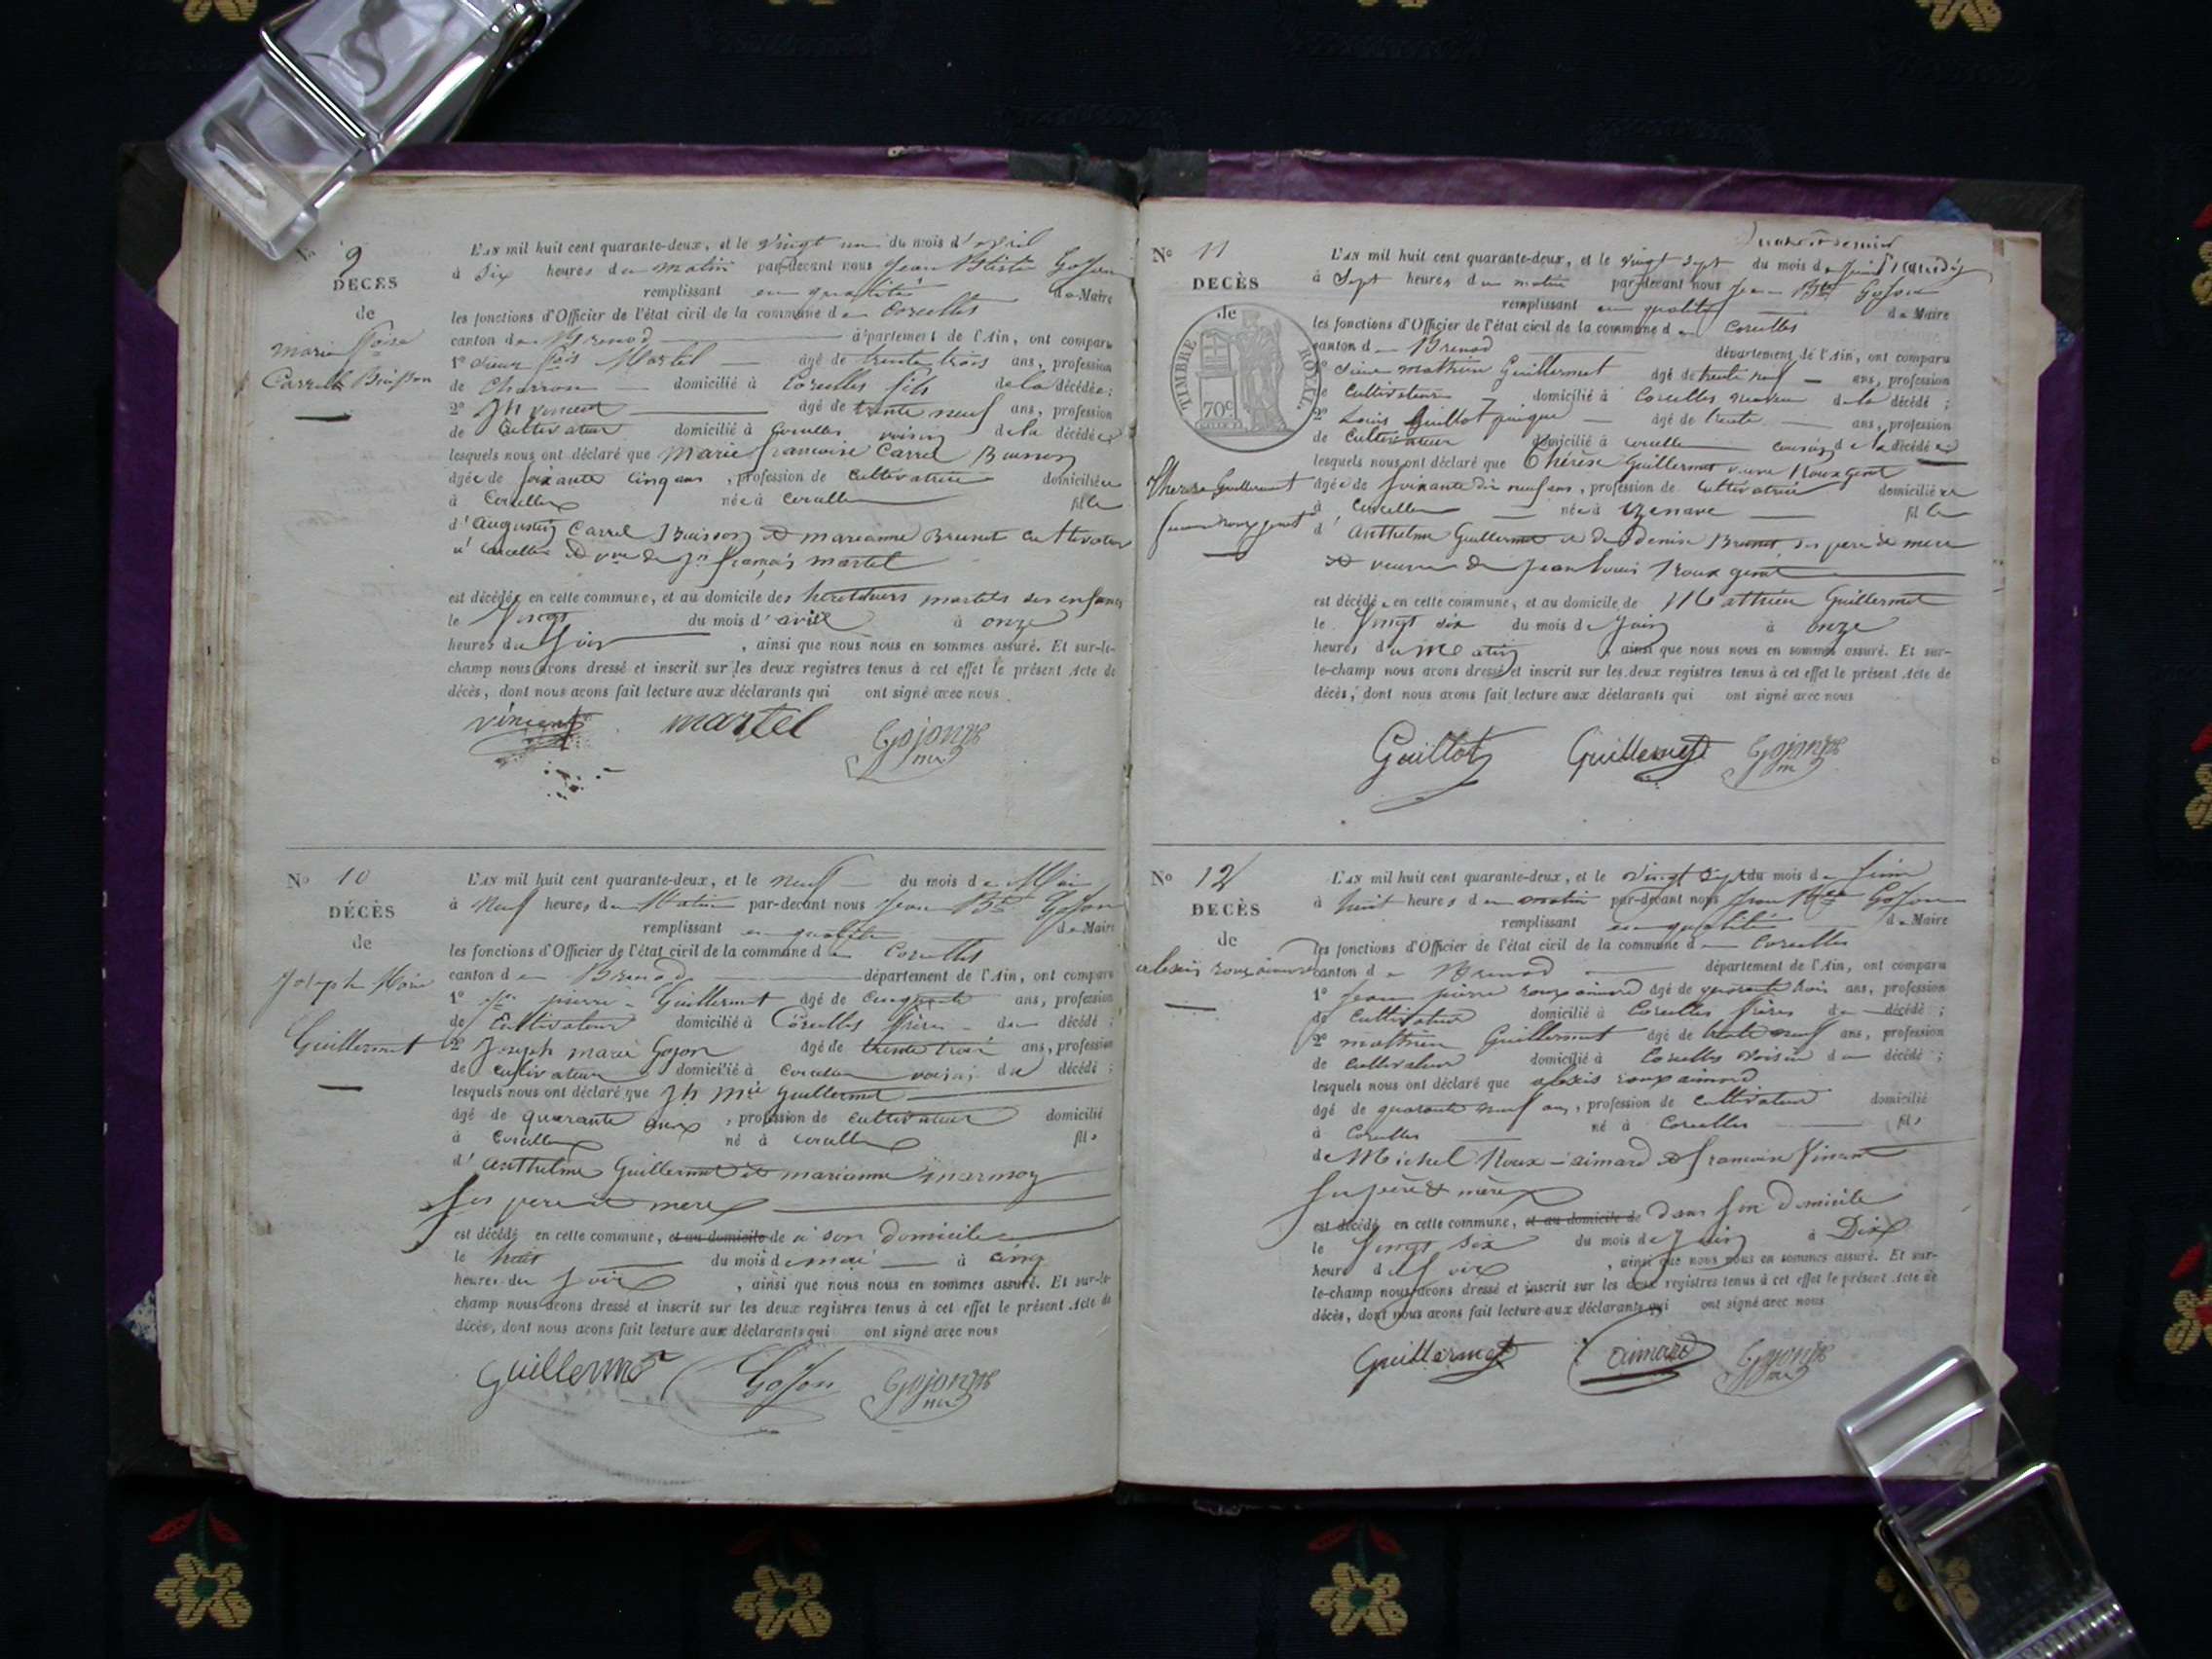 No 9
DECÈS
de
Marie
Carrel Buisson
L'AN mil huit cent quarante-deux, et le vingt un du mois d'avril
à Six heures du matin par-devant nous Jean Btiste Gojon
remplissant en qualité de Maire
les fonctions d'Officier de l'état civil de la commune de Corcelles
canton de Brenod département de l'Ain, ont comparu
1º Sieur fois Martel âgé de trente trois ans, profession
de Charron domicilié à Corcelles fils de la décédée ;
2º Jh vincent âgé de trente neuf ans, profession
de Cultivateur domicilié à Corcelles voisin de la décédée
lesquels nous ont déclaré que Marie francoise Carrel Buisson
âgée de soixante cinq ans, profession de cultivatrice domiciliée
à Corcelles née à Corcelles fille
d'Augustin Carrel Buisson et marianne Brunet cultivateur
à Corcelles et vve de jn françois martel
est décédée en cette commune, et au domicile des heritiers martels ses enfans
le Vingt du mois d'avril à onze
heures du Soir, ainsi que nous nous en sommes assuré. Et sur-le-
champ nous avons dressé et inscrit sur les deux registres tenus à cet effet le présent Acte de
décès, dont nous avons fait lecture aux déclarants qui ont signé avec nous
vincent martel Gojon
No 10
DÉCÈS
de
Joseph Marie
Guillermet
L'AN mil huit cent quarante-deux, et le neuf du mois de Mai
à Neuf heures du Matin par-devant nous Jean Bte Gojon
remplissant en qualité de Maire
les fonctions d'Officier de l'état civil de la commune de Corcelles
canton de Brenod département de l'Ain, ont comparu
1º pierre Guillermet âgé de cinquante ans, profession
de Cultivateur domicilié à Corcelles frère du décédé ;
2º Joseph marie Gojon âgé de trente trois ans, profession
de cultivateur domicilié à Corcelles voisin du décédé ;
lesquels nous ont déclaré que Jh Mie Guillermet
âgé de quarante ans, profession de cultivateur domicilié
à Corcelles né à Corcelles fils
d'Anthelme Guillermet et marianne marmoz
Ses pere et mere
est décédé en cette commune, et au domicile de à son domicile
le huit du mois de mai à cinq
heures du soir, ainsi que nous nous en sommes assuré. Et sur-le-
champ nous avons dressé et inscrit sur les deux registres tenus à cet effet le présent Acte de
décès, dont nous avons fait lecture aux déclarants qui ont signé avec nous
Guillermet Gojon Gojon
No 11
DECÈS
de
TIMBRE ROYAL
70c
Therese Guillermet
L'AN mil huit cent quarante-deux, et le vingt sept du mois de juin
à Sept heures du matin par-devant nous Jean Bte Gojon
remplissant en qualité de Maire
les fonctions d'Officier de l'état civil de la commune de Corcelles
canton de Brenod département de l'Ain, ont comparu
1º Sieur mathieu Guillermet âgé de trente neuf ans, profession
de Cultivateur domicilié à Corcelles neveu de la décédé ;
2º Louis Guillot âgé de trente ans, profession
de Cultivateur domicilié à Corcelles cousin de la décédée
lesquels nous ont déclaré que Thérèse Guillermet veuve Roux genet
âgée de soixante dix neuf ans, profession de cultivatrice domiciliée
à Corcelles née à izenave fille
d'Anthelme Guillermet et de denise Brunet, ses pere et mere
et veuve de Jean Louis Roux genet
est décédée en cette commune, et au domicile de Matthieu Guillermet
le Vingt six du mois de Juin à onze
heures du Matin, ainsi que nous nous en sommes assuré. Et sur-
le-champ nous avons dressé et inscrit sur les deux registres tenus à cet effet le présent Acte de
décès, dont nous avons fait lecture aux déclarants qui ont signé avec nous
Guillot Guillermet Gojon
No 12
DECÈS
de
alexis roux aimard
L'AN mil huit cent quarante-deux, et le vingt Sept du mois de Juin
à huit heures du matin par-devant nous Jean Bte Gojon
remplissant en qualité de Maire
les fonctions d'Officier de l'état civil de la commune de Corcelles
canton de Brenod département de l'Ain, ont comparu
1º Jean pierre roux aimard âgé de quarante trois ans, profession
de Cultivateur domicilié à Corcelles frères du décédé ;
2º mathieu Guillermet âgé de trente neuf ans, profession
de cultivateur domicilié à Corcelles voisin du décédé ;
lesquels nous ont déclaré que alexis roux aimard
âgé de quarante neuf ans, profession de cultivateur domicilié
à Corcelles né à Corcelles fils
de Michel Roux-aimard et francoise Vincent
Ses père et mère
est décédé en cette commune, et au domicile de dans Son Domicile
le Vingt Six du mois de Juin à Dix
heures du Soir, ainsi que nous nous en sommes assuré. Et sur-
le-champ nous avons dressé et inscrit sur les deux registres tenus à cet effet le présent Acte de
décès, dont nous avons fait lecture aux déclarants qui ont signé avec nous
Guillermet aimard Gojon